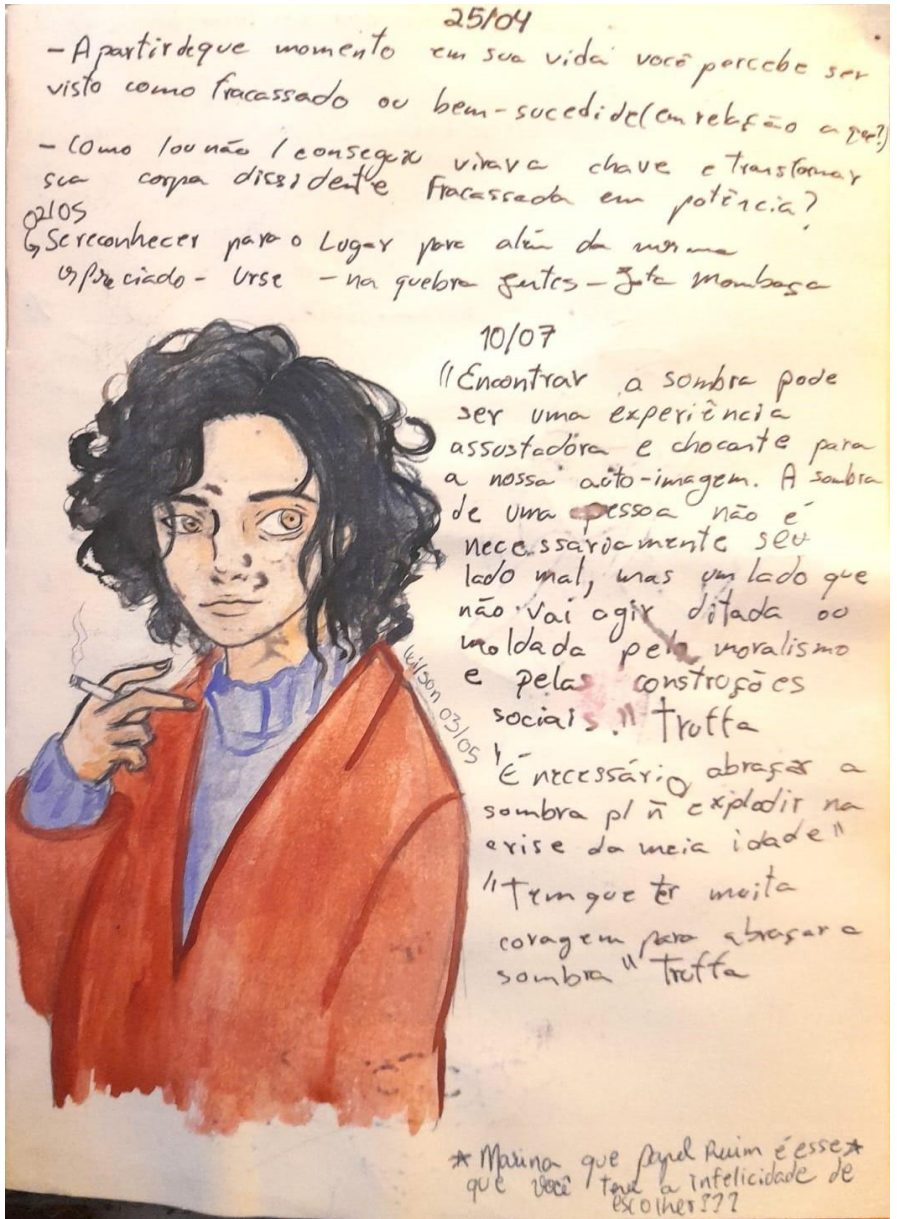 25/04
- A partir de que momento em sua vida você percebe ser
visto como fracassado ou bem-sucedide(em relação a que?)
- Como /ou não / consegux virar a chave e transformar
sua corpa dissidente fracassada em potência?
02/05
↳ Se reconhecer para o Lugar para além da
- na quebra juntes - Jota Mombaça
10/07
"Encontrar a sombra pode
ser uma experiência
assustadora e chocante para
a nossa auto-imagem. A sombra
de uma pessoa não é
necessariamente seu
lado mal, mas um lado que
não vai agir ditada ou
moldada pelo moralismo
e pelas construções
sociais." Truffa
"É necessário abraçar a
sombra p/ ñ explodir na
crise da meia idade"
"Tem que ter muita
coragem para abraçar a
sombra" Truffa
Wilson 03/05
* Marina que papel Ruim é esse *
que você teve a infelicidade de
escolher???